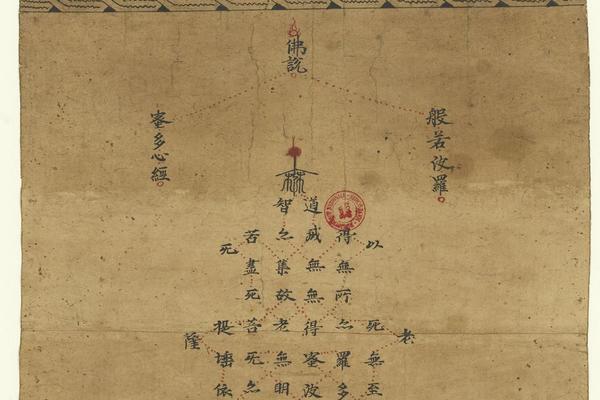 佛說
般若波羅
蜜多心經
老
以死無至
得無所亦羅多
道滅無無得蜜波
智亦集故老無明
苦盡死苦死亦
死提埵依
薩